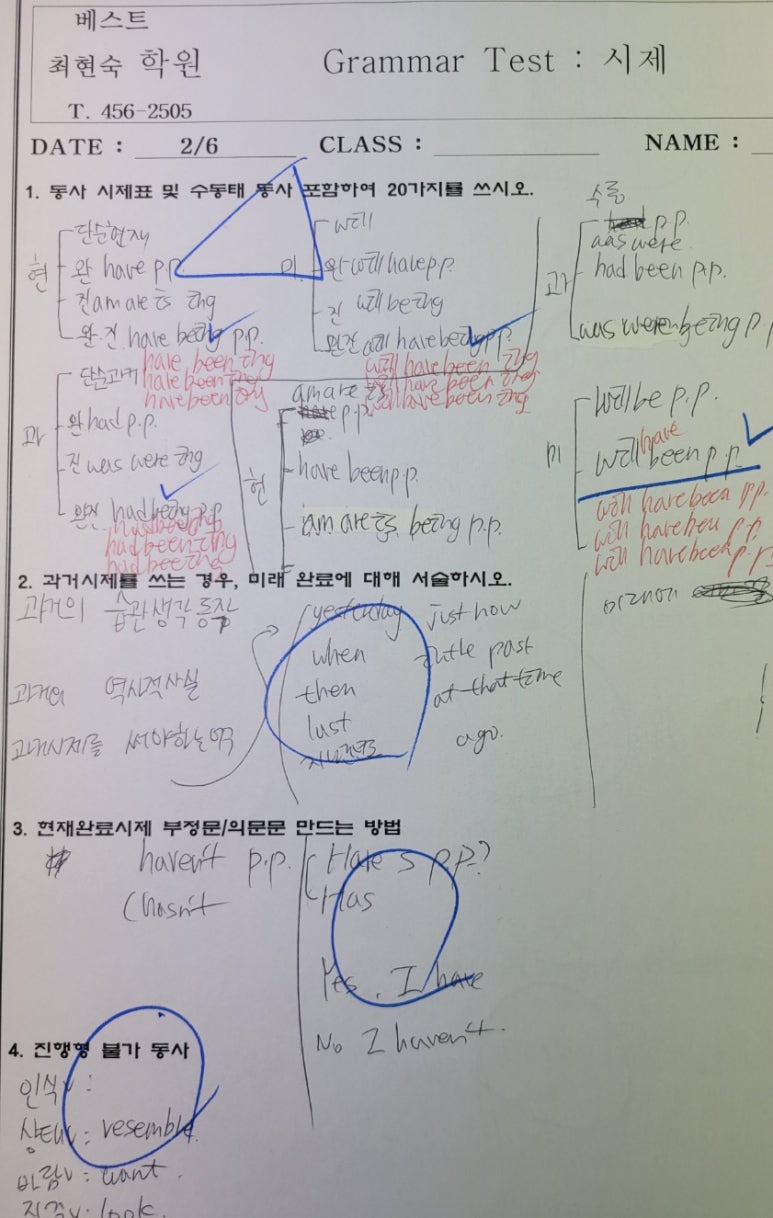 베스트
최현숙 학원 Grammar Test : 시제
T. 456-2505
DATE : 2/6 CLASS : NAME :
1. 동사 시제표 및 수동태 동사 포함하여 20가지를 쓰시오.
현
단순현재
완 have p.p.
진 am are is ing
완.진 have being p.p.
have been ing
have been ing
have been ing
미
will
완 will have p.p.
진 will be ing
완진 will have being p.p.
will have been ing
will have been ing
will have been ing
수동
과
p.p.
was were
had been p.p.
was were being p.p
과
단순과거
완 had p.p.
진 was were ing
완진 had being p.p
had been ing
had been ing
현
am are is
p.p.
have been p.p.
am are is being p.p.
미
will be p.p.
will have been p.p.
will have been p.p.
will have been p.p.
will have been p.p.
2. 과거시제를 쓰는 경우, 미래 완료에 대해 서술하시오.
과거의 습관 생각 동작
과거의 역사적 사실
과거시제를 써야하는
yesterday just now
when in the past
then at that time
last ago.
3. 현재완료시제 부정문/의문문 만드는 방법
haven't p.p.
(hasn't
Have S p.p.?
Has
Yes, I have
No I haven't.
4. 진행형 불가 동사
인식v :
상태v : resemble.
바람v : want.
지각v : look.